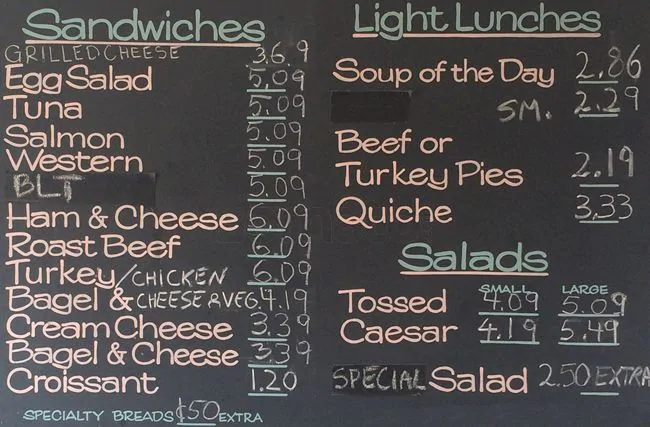 Sandwiches
GRILLED CHEESE 3.69
Egg Salad 5.09
Tuna 5.09
Salmon 5.09
Western 5.09
BLT 5.09
Ham & Cheese 6.09
Roast Beef 6.09
Turkey/CHICKEN 6.09
Bagel & CHEESE R VEG 4.19
Cream Cheese 3.39
Bagel & Cheese 3.39
Croissant 1.20
SPECIALTY BREADS ¢50 EXTRA
Light Lunches
Soup of the Day 2.86
SM. 2.29
Beef or
Turkey Pies 2.19
Quiche 3.33
Salads
SMALL LARGE
Tossed 4.09 5.09
Caesar 4.19 5.49
SPECIAL Salad 2.50 EXTRA